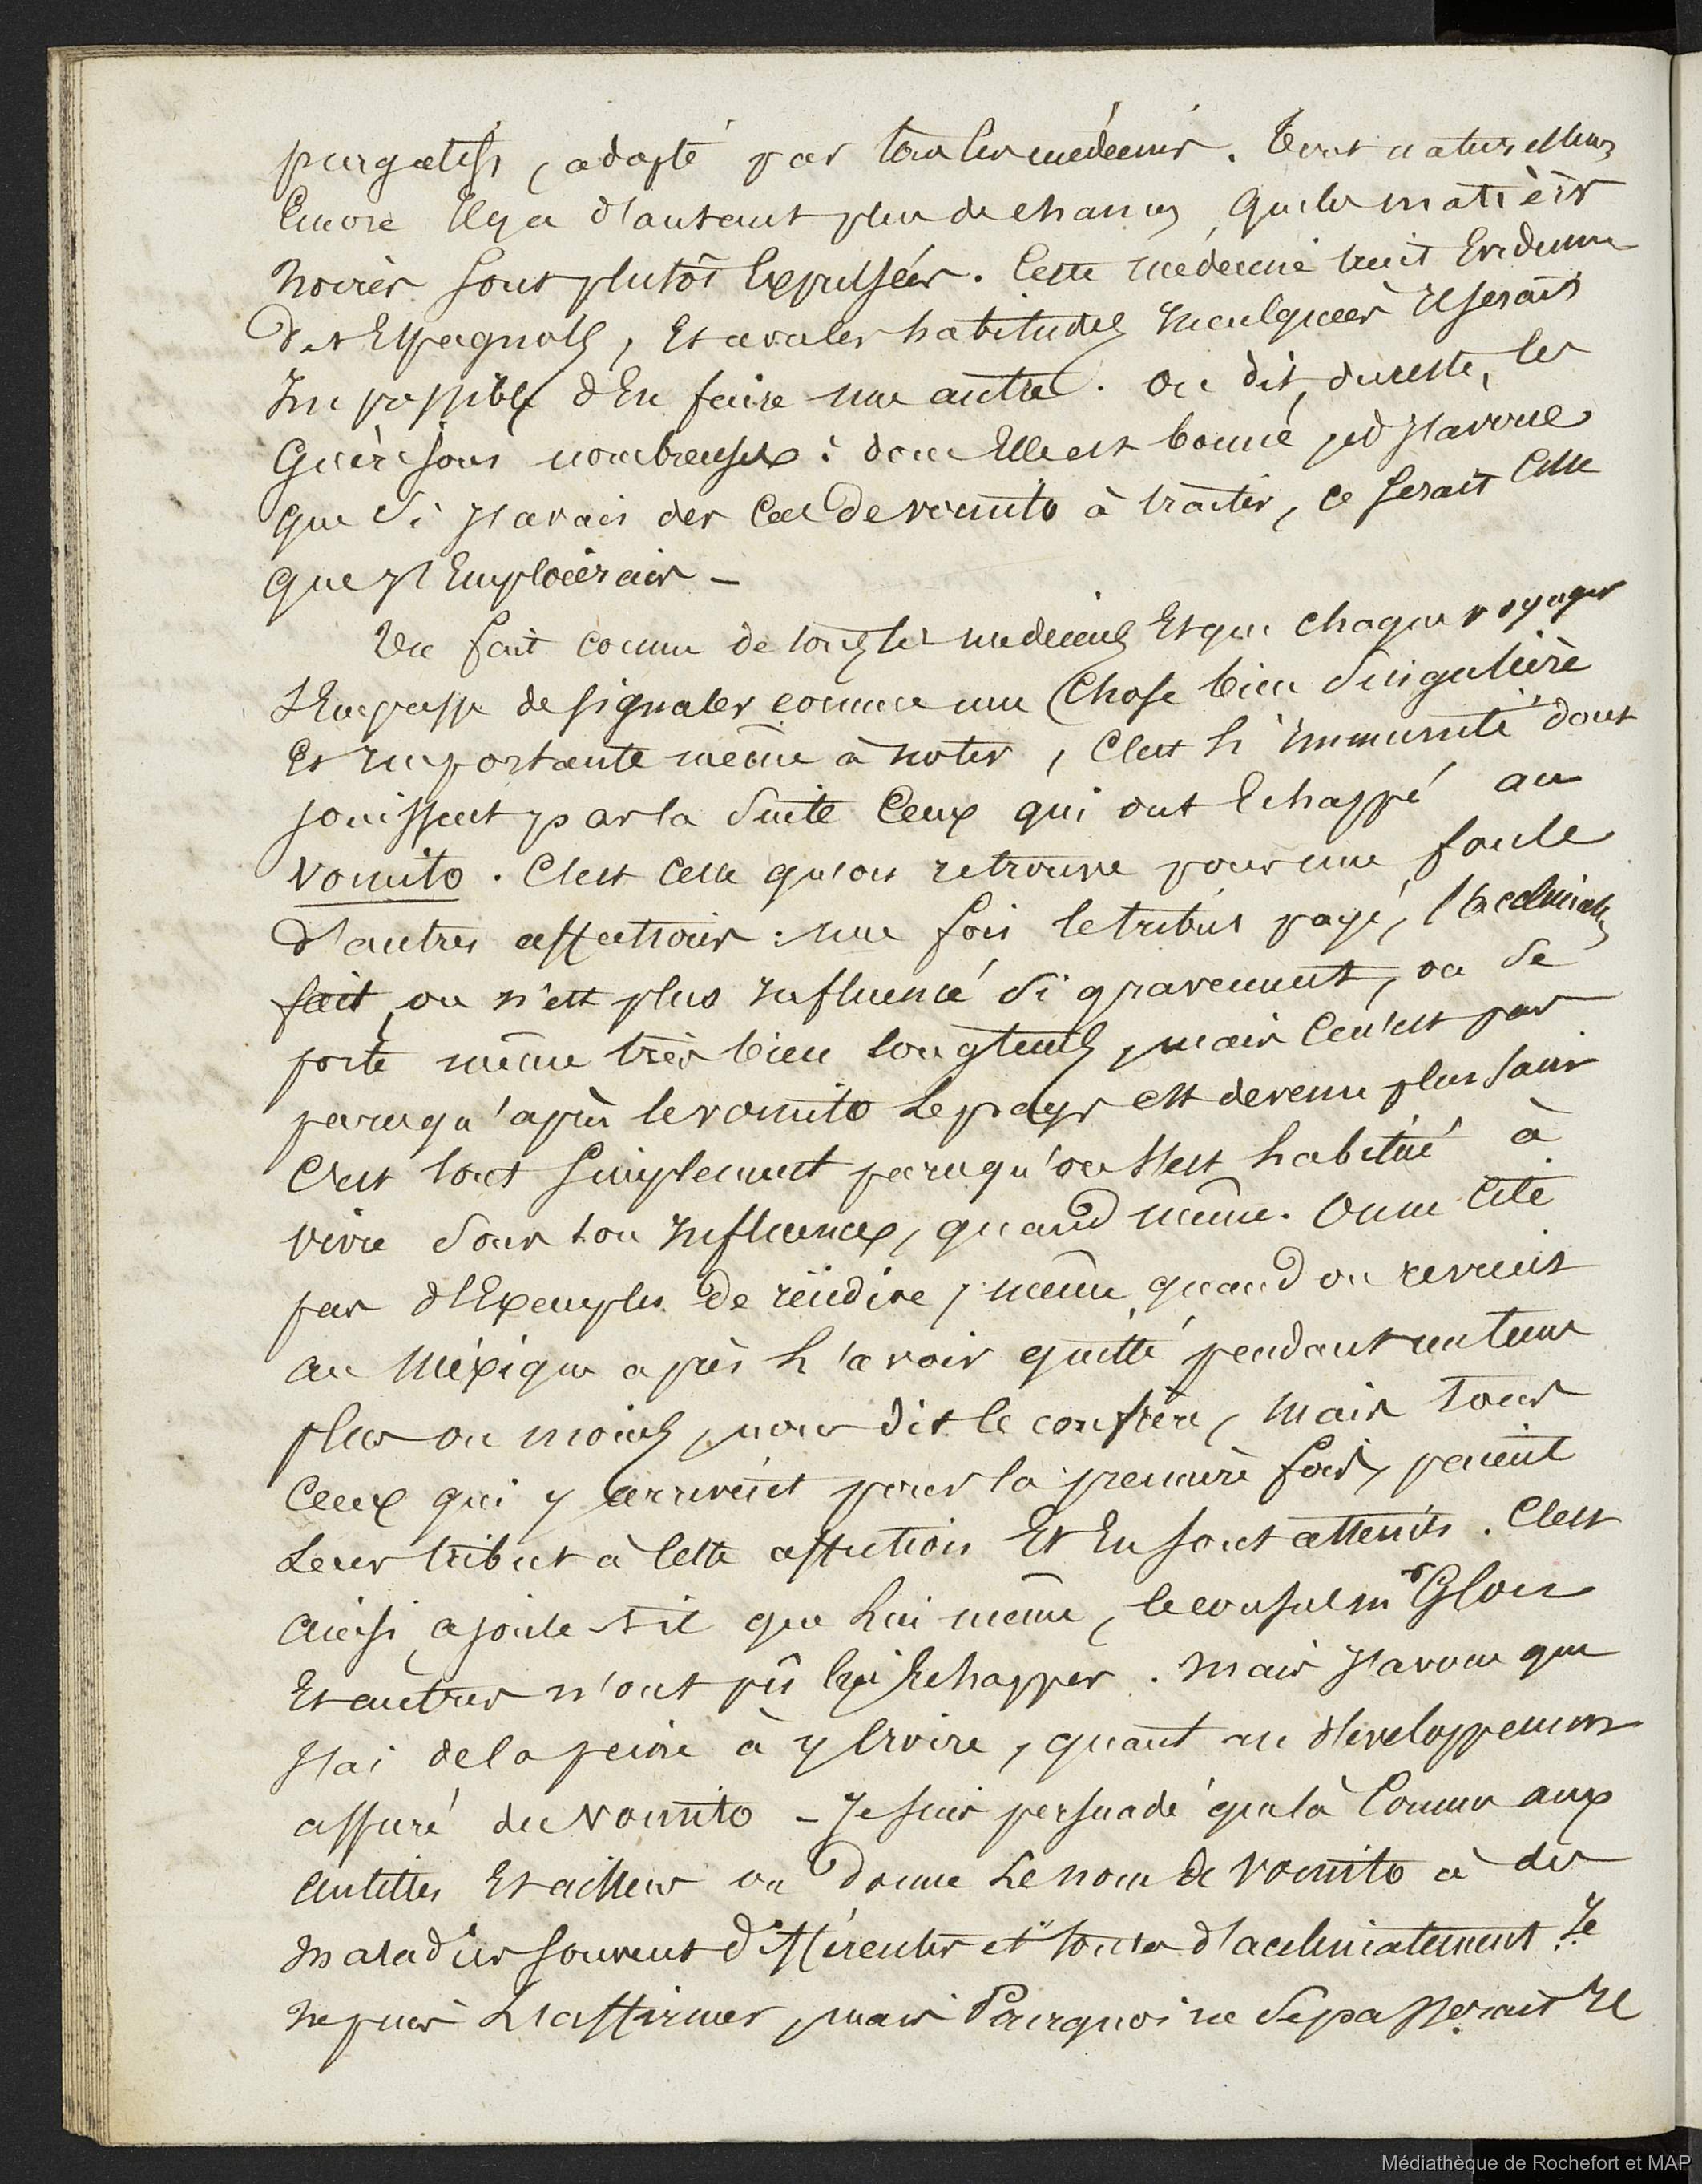 purgatifs, adopté par tous les médecins. Tout naturellement
Encore Il y a d'autant plus de chances, que les matières
noires sont plutôt Expulsées. Cette médecine tient
des Espagnols, Et avec les habitudes Inculquées Il serait
Impossible d'En faire une autre. On dit, du reste, les
Guérisons nombreuses : donc Elle est bonne, j'avoue
que si j'avais des Cas de vomito à traiter, ce serait Celle
que j'Emploierais -
Un fait connu de tous les médecins Et que chaque voyageur
s'Empresse de signaler comme une Chose bien singulière
Et Importante même à noter, C'est l'Immunité dont
jouissent par la suite Ceux qui ont Echappé au
vomito. C'est Celle qu'on retrouve pour une foule
d'autres affections : une fois le tribut payé, l'acclimatement
fait, on n'est plus Influencé si gravement, on se
porte même très bien longtems, mais Ce n'est pas
parcequ'après le vomito Le pays est devenu plus sain
C'est tout simplement parcequ'on s'est habitué à
vivre sous son Influence, quand même. On ne Cite
pas d'Exemples de récidive, même quand on revient
au Méxique après l'avoir quitté pendant un tems
plus ou moins, nous dit le confrère, Mais tous
Ceux qui y arrivent pour la première fois, paient
Leur tribut à Cette affection Et En sont atteints. C'est
ainsi, ajoute t-il que Lui même, le consul Mr Glou
Et autres n'ont pû lui Echapper. Mais j'avoue que
j'ai de la peine à y Croire, quant au développement
assuré du vomito - Je suis persuadé que là Comme aux
Antilles Et ailleurs on donne Le nom de vomito à des
maladies souvent différentes et toutes d'acclimatement. Je
ne puis L'affirmer, mais Pourquoi ne se passerait Il
Médiathèque de Rochefort et MAP